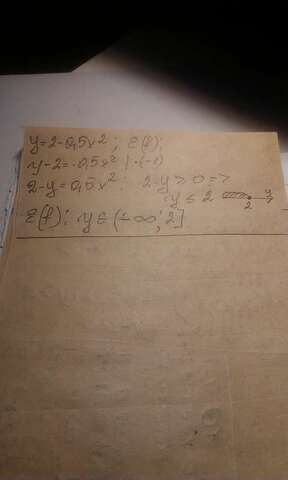 y=2-0,5x²; E(f);
y-2=-0,5x² | ·(-1)
2-y=0,5x²; 2-y ≥ 0 =>
y ≤ 2 y
2
E(f): y ∈ (-∞; 2]